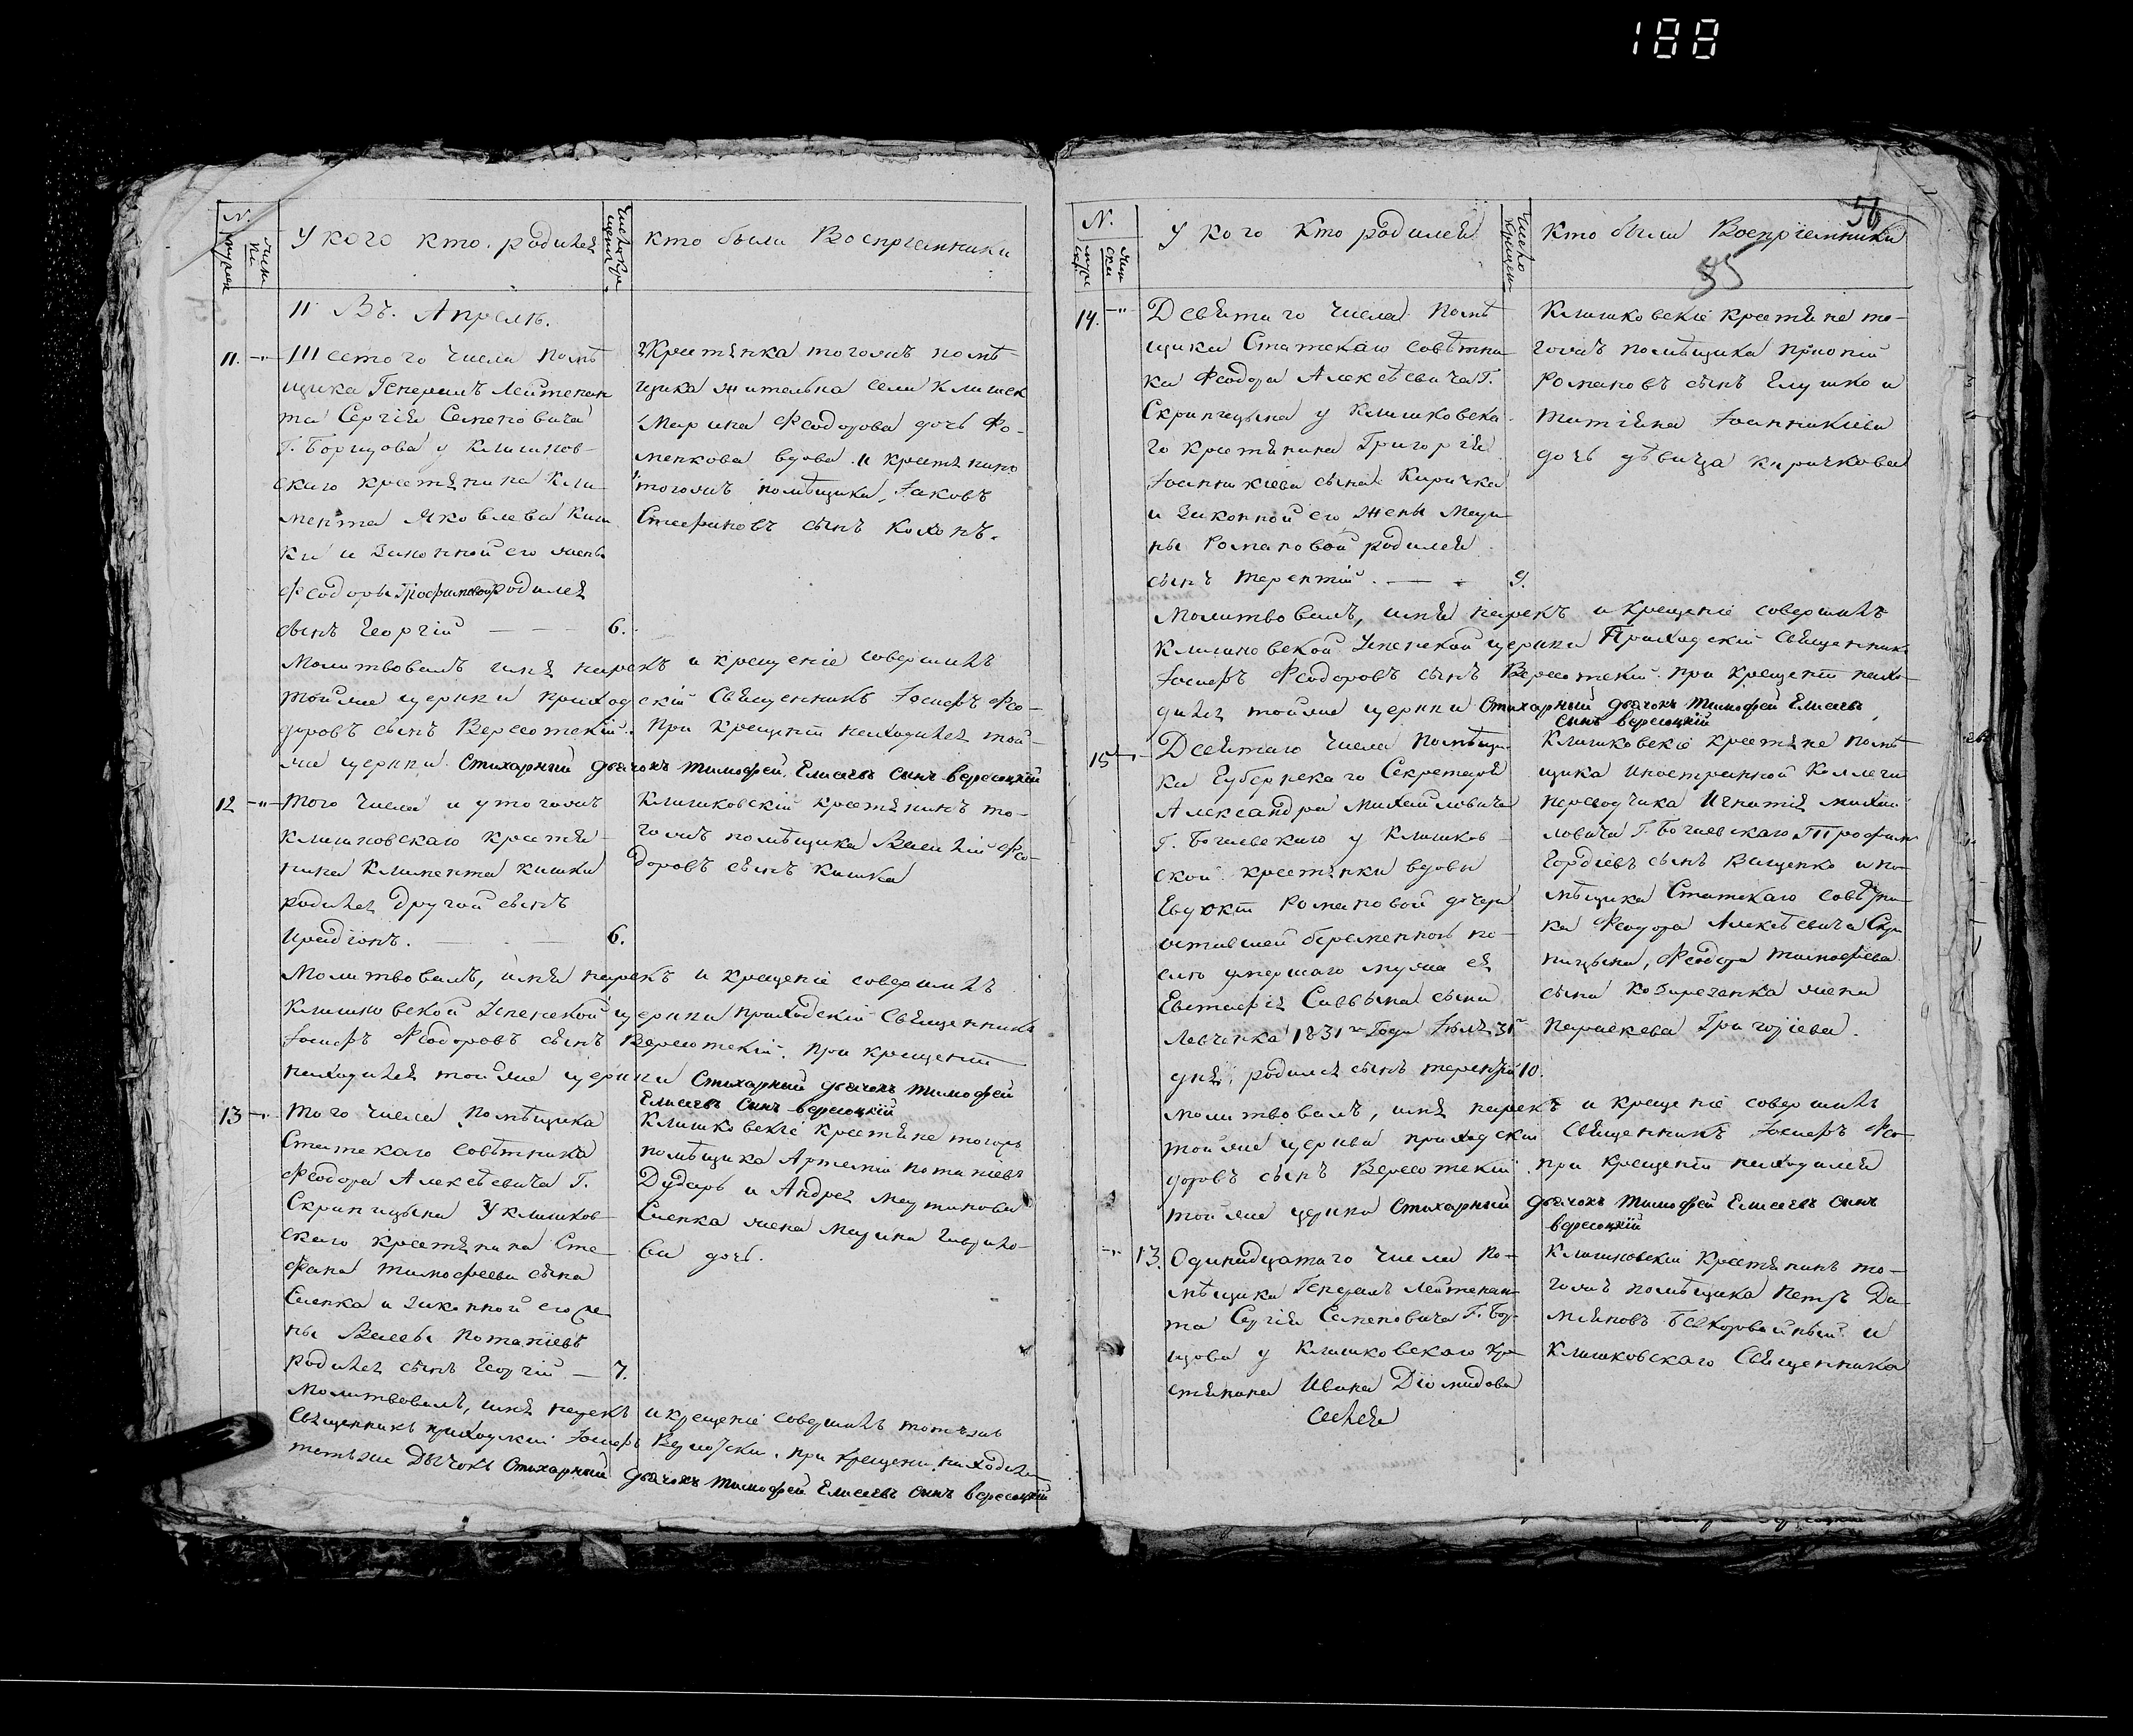 188
N.
мужск
женски
У кого кто родился
Число крещенія
Кто были Воспріемники
Въ Апрелѣ.
11. -"-
Шестого числа помѣ
щика Генералъ Лейтенан
та Сергія Семеновича
Г. Борщова у Клишков-
скаго крестянина Кли
мента Яковлева Киш
ки и Законной его жены
Феодоры Трофимовой родился
сынъ Георгій — 6.
Крестянка тогожъ помѣ-
щика жителька села Клишек
Марина Феодорова дочь Фо-
менкова вдова и крестянинъ
тогожъ помѣщика, Іаковъ
Стефановъ сынъ
Молитвовалъ имя нарекъ и крещеніе совершилъ
тойже церкви приходскій Священникъ Іосифъ Фео-
доровъ сынъ Вересотскій. При крещеніи находился той-
же церкви Стихарный дьячокъ Тимофей Елисеевъ Синъ вересоцкій
12 -"-
Того числа и у тогожъ
Клишковскаго крестя-
нина Климента Кишки
родился другой сынъ
Иродіонъ. — 6.
Клишковскій крестянинъ то-
гожъ помѣщика Василій Фео-
доровъ сынъ Кишка
Молитвовалъ, имя нарекъ и крещеніе совершилъ
Клишковской Успенской церкви приходскій Священникъ
Іосифъ Феодоровъ сынъ Вересотскій. при крещеніи
находился тойже церкви Стихарный дьячокъ Тимофей
Елисеевъ Синъ вересоцкій
13 -"-
Того числа помѣщика
Статскаго Совѣтника
Феодора Алексѣевича Г.
Скрипицына У Клишков-
скаго крестянина Сте-
фана Тимофеева сына
Слепка и Законной его же
ны Потапіевъ
родился сынъ Георгій — 7.
Клишковскіе крестяне тогожъ
помѣщика Артемій Потапіевъ
Дударь и Андрея Мартинова
Слепка жена Марина Гаврило-
ва дочь.
Молитвовалъ, имя нарекъ и крещеніе совершилъ тотъже
Священникъ приходскій Іосифъ Вересотскій. при крещеніи находился
тотъже Дьячокъ Стихарный дьячокъ Тимофей Елисеевъ Синъ вересоцкій
56
55
N.
У кого Кто родился
Число крещенія
Кто были Воспріемники
14. -"-
Девятого числа помѣ
щика Статскаго совѣтни
ка Феодора Алексѣевича Г.
Скрипицына у Клишковска
го крестянина Григорія
Іоанникіева сына Киричка
и Законной его жены Мари
ны Романовой родился
сынъ Терентій. — 9.
Клишковскіе крестяне то-
гожъ помѣщика
Романовъ сынъ Глушко и
Татіяна Іоанникіева
дочь дѣвица Киричкова
Молитвовалъ, имя нарекъ и крещеніе совершилъ
Клишковской Успенской церкви Приходскій Священникъ
Іосифъ Феодоровъ сынъ Вересотскій. при крещеніи нахо-
дился тойже церкви Стихарный дьячокъ Тимофей Елисеевъ
Синъ вересоцкій
15 -"-
Девятаго числа помѣщи
ка Губернскаго Секретаря
Александра Михайловича
Г. Богаевскаго у Клишков-
ской крестянки вдовы
Евдокіи Романовой дочери
оставшей беременною по-
слѣ умершаго мужа ея
Евстафія Саввына сына
Левченка 1831го Года 31го
дня, родился сынъ Терентій 10.
Клишковскіе крестяне помѣ
щика Иностранной Коллегіи
переводчика Игнатія Михай
ловича Г. Богаевскаго Трофимъ
Гордіевъ сынъ Ващенко и по-
мѣщика Статскаго совѣтни
ка Феодора Алексѣевича Скри
пицына, Феодора Тимофеева
сына жена
Параскева Григоріева.
Молитвовалъ, имя нарекъ и крещеніе совершилъ
тойже церкви приходскій Священникъ Іосифъ Фео-
доровъ сынъ Вересотскій. при крещеніи находился
тойже церкви Стихарный дьячокъ Тимофей Елисеевъ Синъ
вересоцкій
-"- 13.
Одинадцатаго числа по-
мѣщика Генералъ Лейтенан-
та Сергія Семеновича Г. Бор-
щова у Клишковскаго кре
стянина Ивана Діомидова
Клишковскій Крестянинъ то-
гожъ помѣщика Петръ Да-
міяновъ и
Клишковскаго Священника